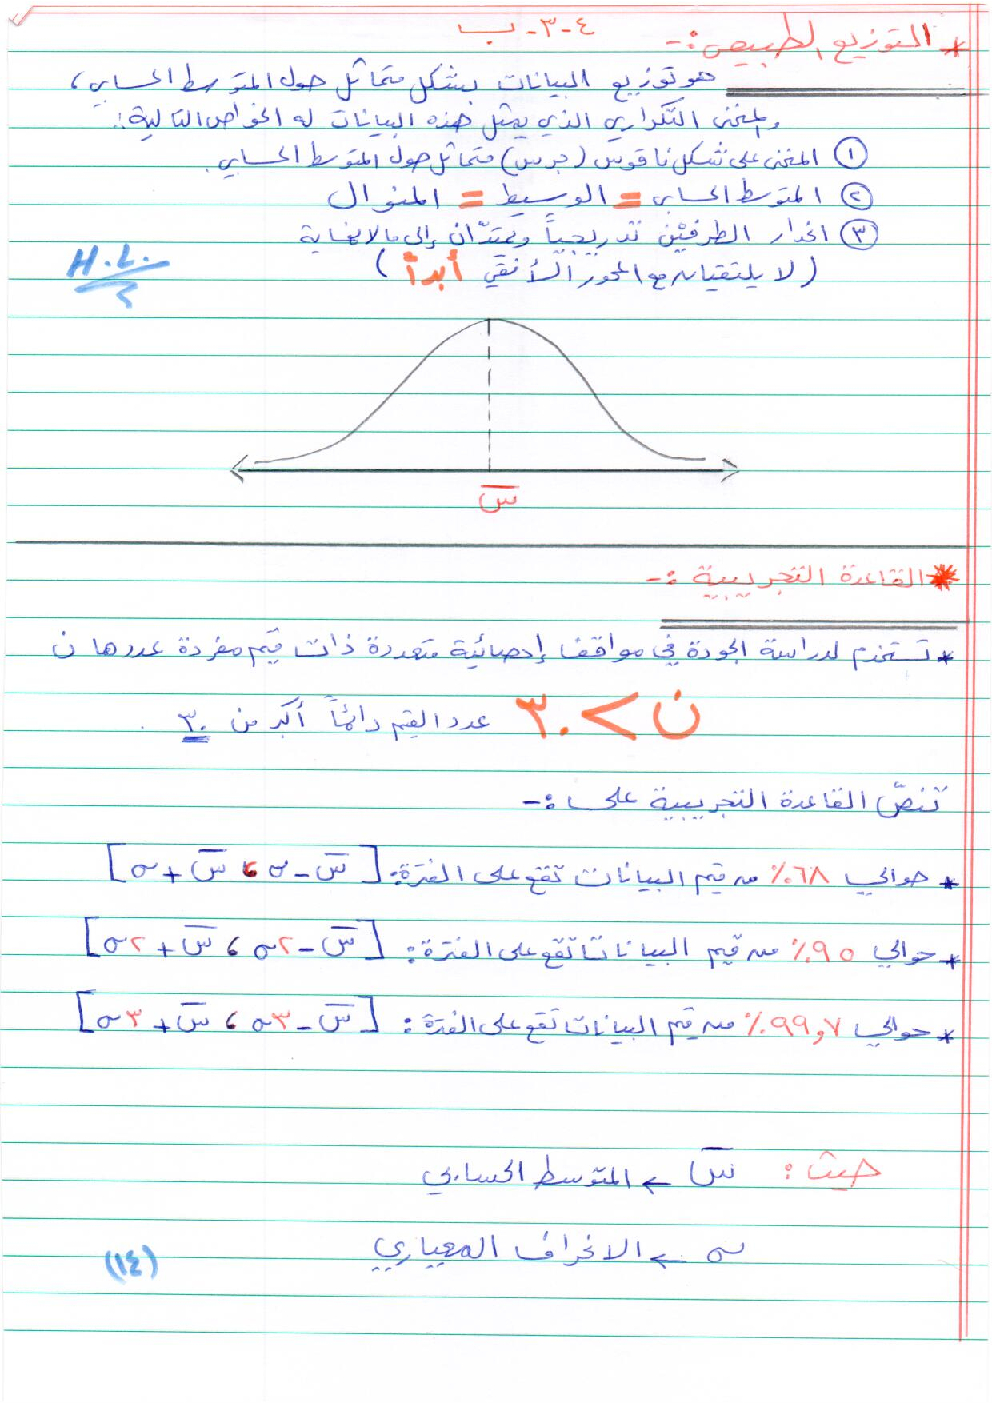 ٤-٣-ب
* التوزيع الطبيعي :-
هو توزيع البيانات بشكل متماثل حول المتوسط الحسابي ،
والمنحنى التكراري الذي يمثل هذه البيانات له الخواص التالية :
① المنحنى على شكل ناقوس (جرس) متماثل حول المتوسط الحسابي .
② المتوسط الحسابي = الوسيط = المنوال
③ انحدار الطرفين تدريجياً ويمتدان إلى مالانهاية
(لا يلتقيان مع المحور الأفقي أبداً)
H.L.
س̄
* القاعدة التجريبية :-
* تستخدم لدراسة الجودة في مواقف إحصائية متعددة ذات قيم مفردة عددها ن
ن > ٣٠ عدد القيم دائماً أكبر من ٣٠ .
تنصّ القاعدة التجريبية على :-
* حوالي ٦٨٪ من قيم البيانات تقع على الفترة : [س̄ - σ ، س̄ + σ]
* حوالي ٩٥٪ من قيم البيانات تقع على الفترة : [س̄ - ٢σ ، س̄ + ٢σ]
* حوالي ٩٩,٧٪ من قيم البيانات تقع على الفترة : [س̄ - ٣σ ، س̄ + ٣σ]
حيث : س̄ ← المتوسط الحسابي
σ ← الانحراف المعياري
(١٤)